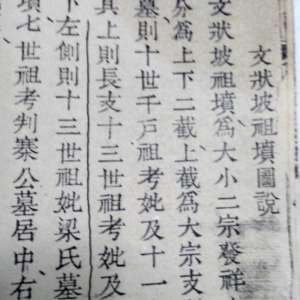 文狀坡祖墳圖說
文狀坡祖墳為大小二宗發祥
分為上下二截上截為大宗支
墓則十世千戸祖考妣及十一
其上則長支十三世祖考妣及
下左側則十三世祖妣梁氏墓
墳七世祖考判寨公墓居中右